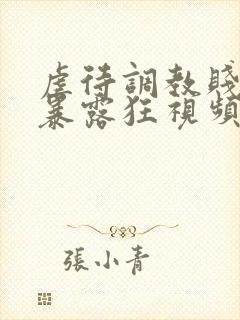 虐待調教賤
暴露狂視頻
張小青